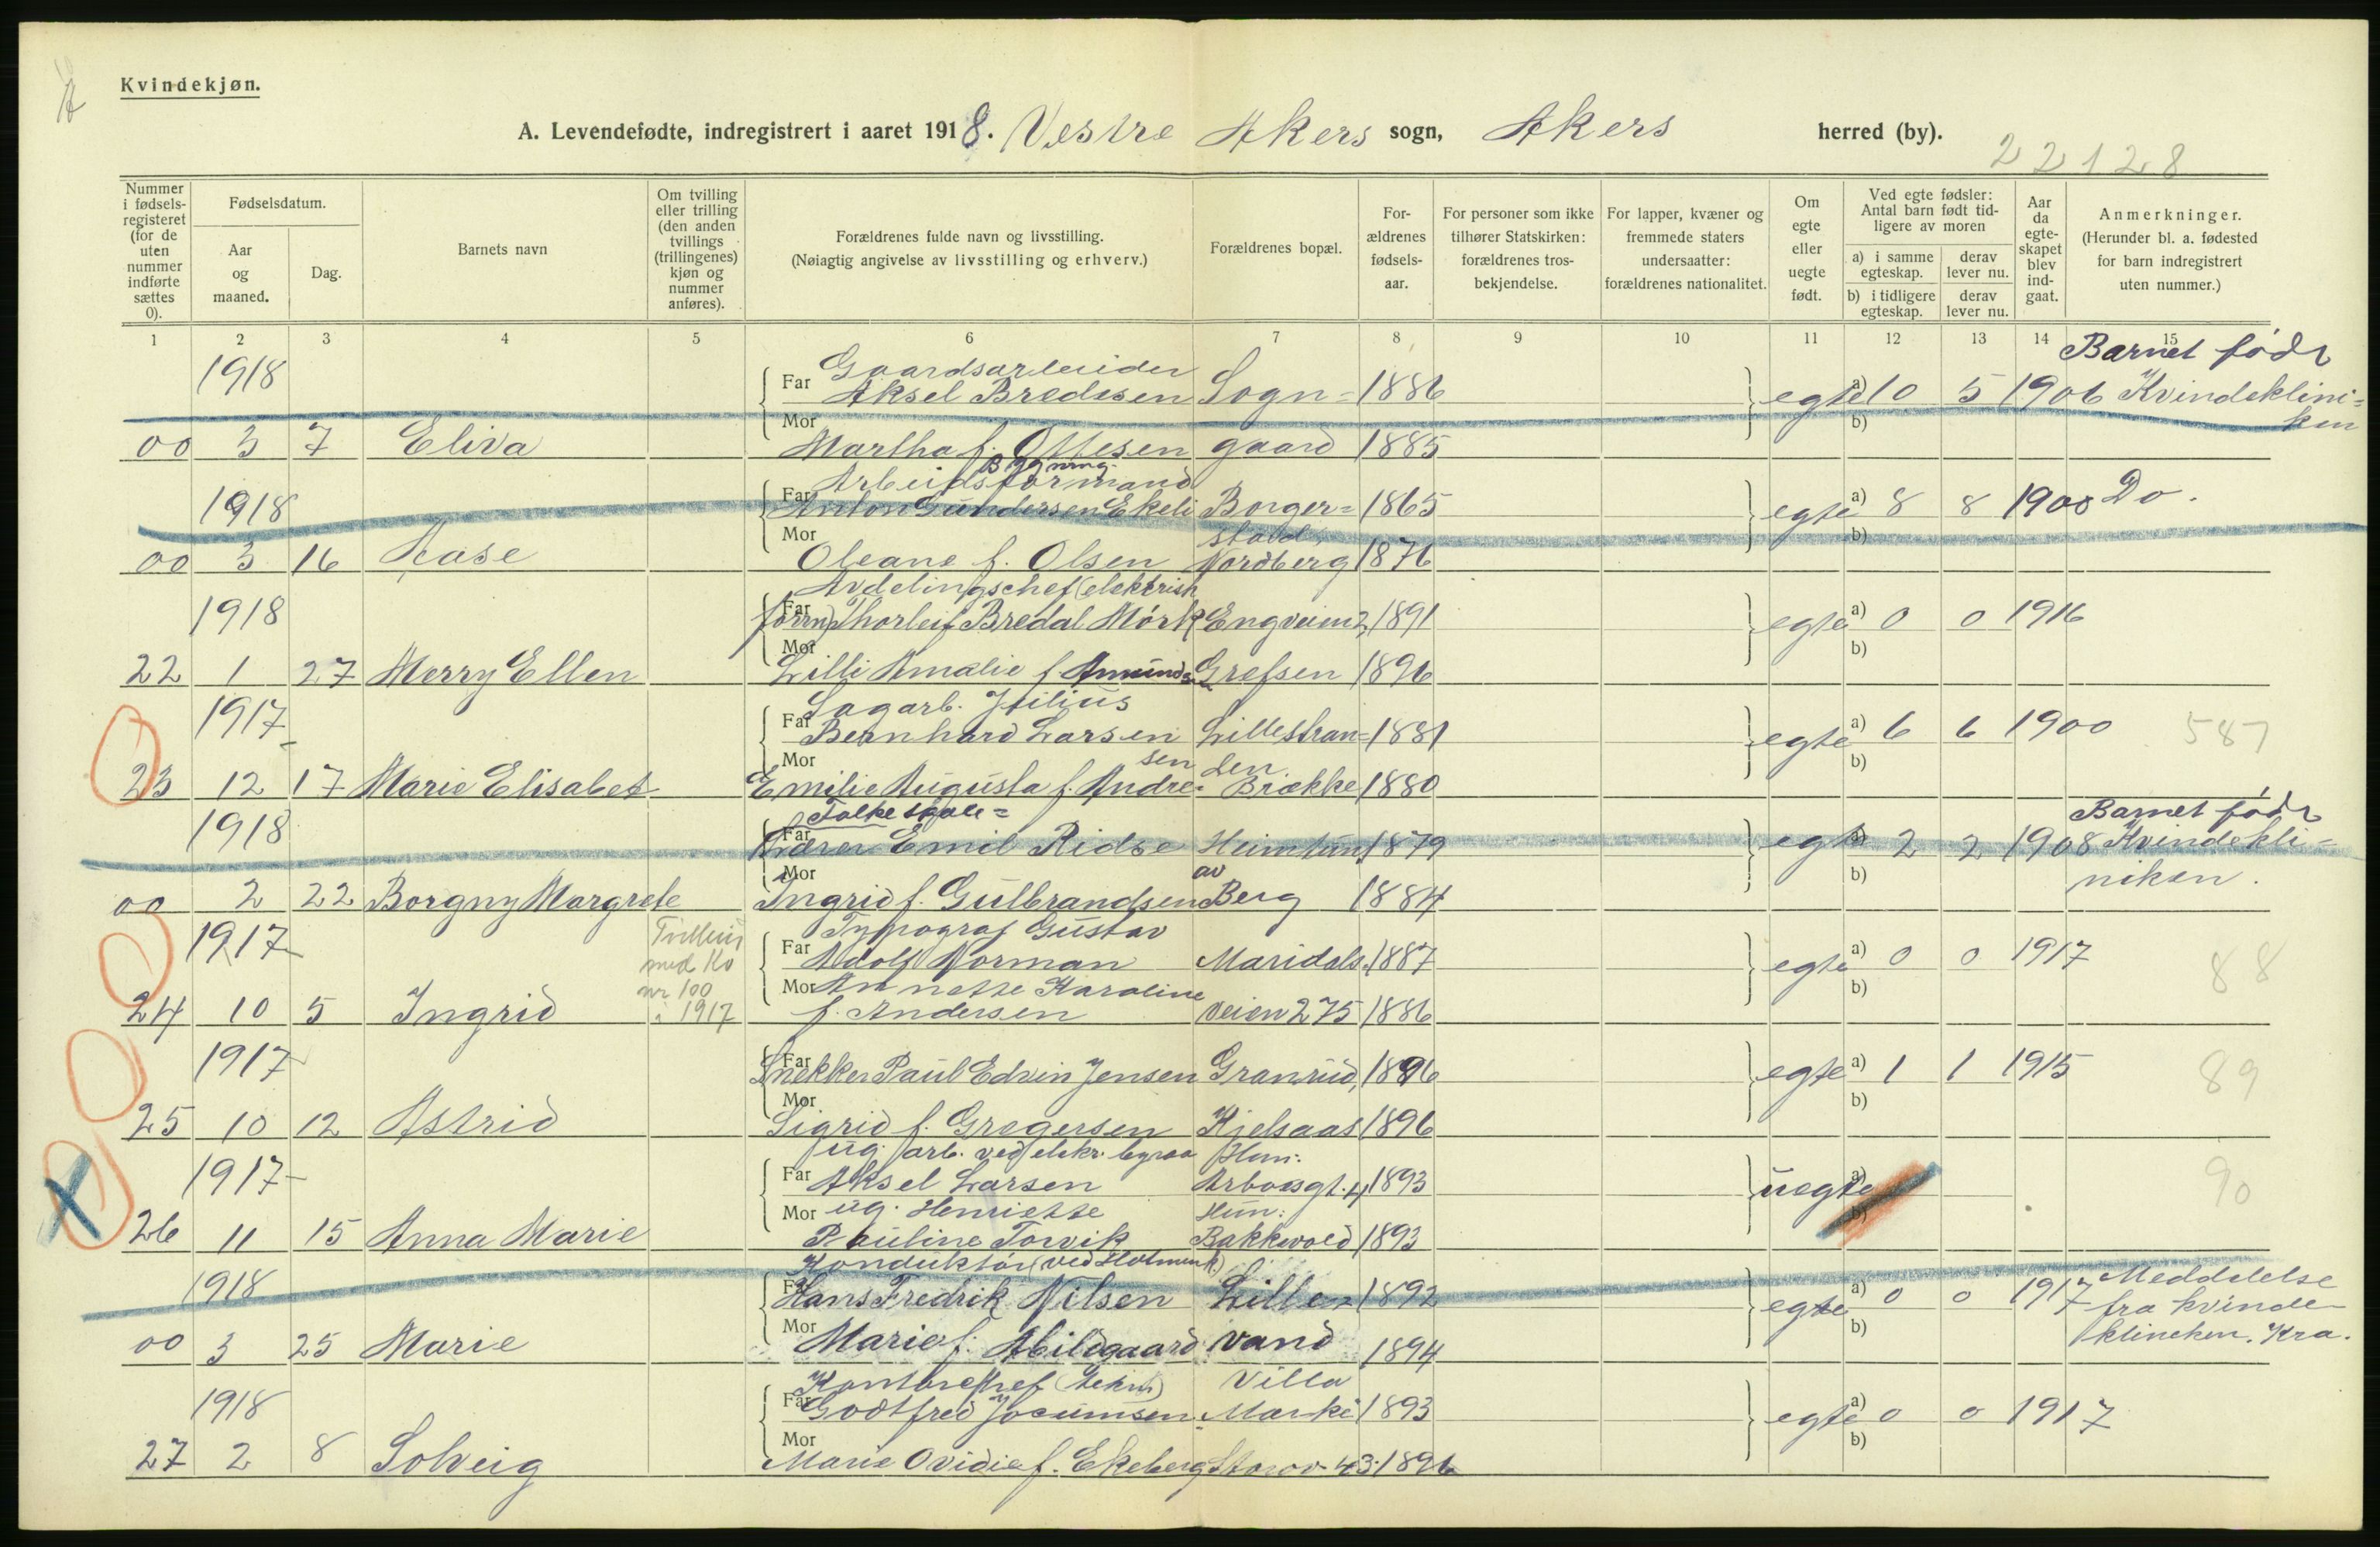 Kvindekjøn.
A. Levendefødte, indregistrert i aaret 1918. Vestre Akers sogn, Akers herred (by).
22128
Nummer i fødsels-registeret (for de uten nummer indførte sættes 0).
Fødselsdatum.
Aar og maaned.
Dag.
Barnets navn
Om tvilling eller trilling (den anden tvillings (trillingenes) kjøn og nummer anføres).
Forældrenes fulde navn og livsstilling.
(Nøiagtig angivelse av livsstilling og erhverv.)
Forældrenes bopæl.
For-ældrenes fødsels-aar.
For personer som ikke tilhører Statskirken: forældrenes tros-bekjendelse.
For lapper, kvæner og fremmede staters undersaatter: forældrenes nationalitet.
Om egte eller uegte født.
Ved egte fødsler: Antal barn født tid-ligere av moren
a) i samme egteskap.
derav lever nu.
b) i tidligere egteskap.
derav lever nu.
Aar da egte-skapet blev ind-gaat.
Anmerkninger.
(Herunder bl. a. fødested for barn indregistrert uten nummer.)
1 2 3 4 5 6 7 8 9 10 11 12 13 14 15
1918 Gaardsarbeider Barnet født
Far Aksel Bredesen Sogn= 1886 egte a) 10 5 1906 Kvindeklini=
Mor b) ken
00 3 7 Eliva Martha f. Ottesen gaard 1885
Bygning
Arbeidsformand
1918 Far Anton Gundersen Ekeli Borger= 1865 egte a) 8 8 1900 Do.
Mor stad, b)
00 3 16 Aase Oleane f. Olsen Nordberg 1876
Avdelingschef (elektrisk
1918 Far forrn) Thorleif Bredal Mörk Engveien 2, 1891 egte a) 0 0 1916
Mor b)
22 1 27 Merry Ellen Lilli Amalie f Amundsen Grefsen 1896
1917 Sagarb. Julius
Far Bernhard Larsen Lillestran= 1881 egte a) 6 6 1900 587
Mor sen den b)
23 12 17 Marie Elisabet Emilie Augusta f. Andre= Brække 1880
1918 Folkeskole= Barnet født
Far Lærer Emil Ridse Heimtun 1879 egte a) 2 2 1908 Kvindekli=
Mor av b) niken.
00 2 22 Borgny Margrete Ingrid f. Gulbrandsen Berg 1884
1917 Tvilling med Ko nr 100 i 1917 Typograf Gustav
Far Adolf Norman Maridals. 1887 egte a) 0 0 1917 88
Mor Annette Karoline b)
24 10 5 Ingrid f. Andersen veien 275 1886
1917 Far Snekker Paul Edvin Jensen Granrud, 1896 egte a) 1 1 1915 89
Mor b)
25 10 12 Astrid Sigrid f. Gregersen Kjelsaas 1896
ug. arb. ved elekr. byraa Han:
1917 Far Aksel Larsen Arbosgt. 4 1893 uegte a) 90
Mor ug. Henriette Hun: b)
26 11 15 Anna Marie Pauline Torvik Bakkevold 1893
Konduktör (ved Holmenk.)
1918 Far Hans Fredrik Nilsen Lille= 1892 egte a) 0 0 1917 Meddelelse
fra kvinde-
Mor b) kliniken. Kra.
00 3 25 Marie Marie f. Abildgaard vand 1894
Kontorchef (tekn) Villa
1918 Far Godtfred Jocumsen Marki 1893 egte a) 0 0 1917
Mor b)
27 2 8 Solveig Marie Ovidie f. Ekeberg Storov. 43. 1896